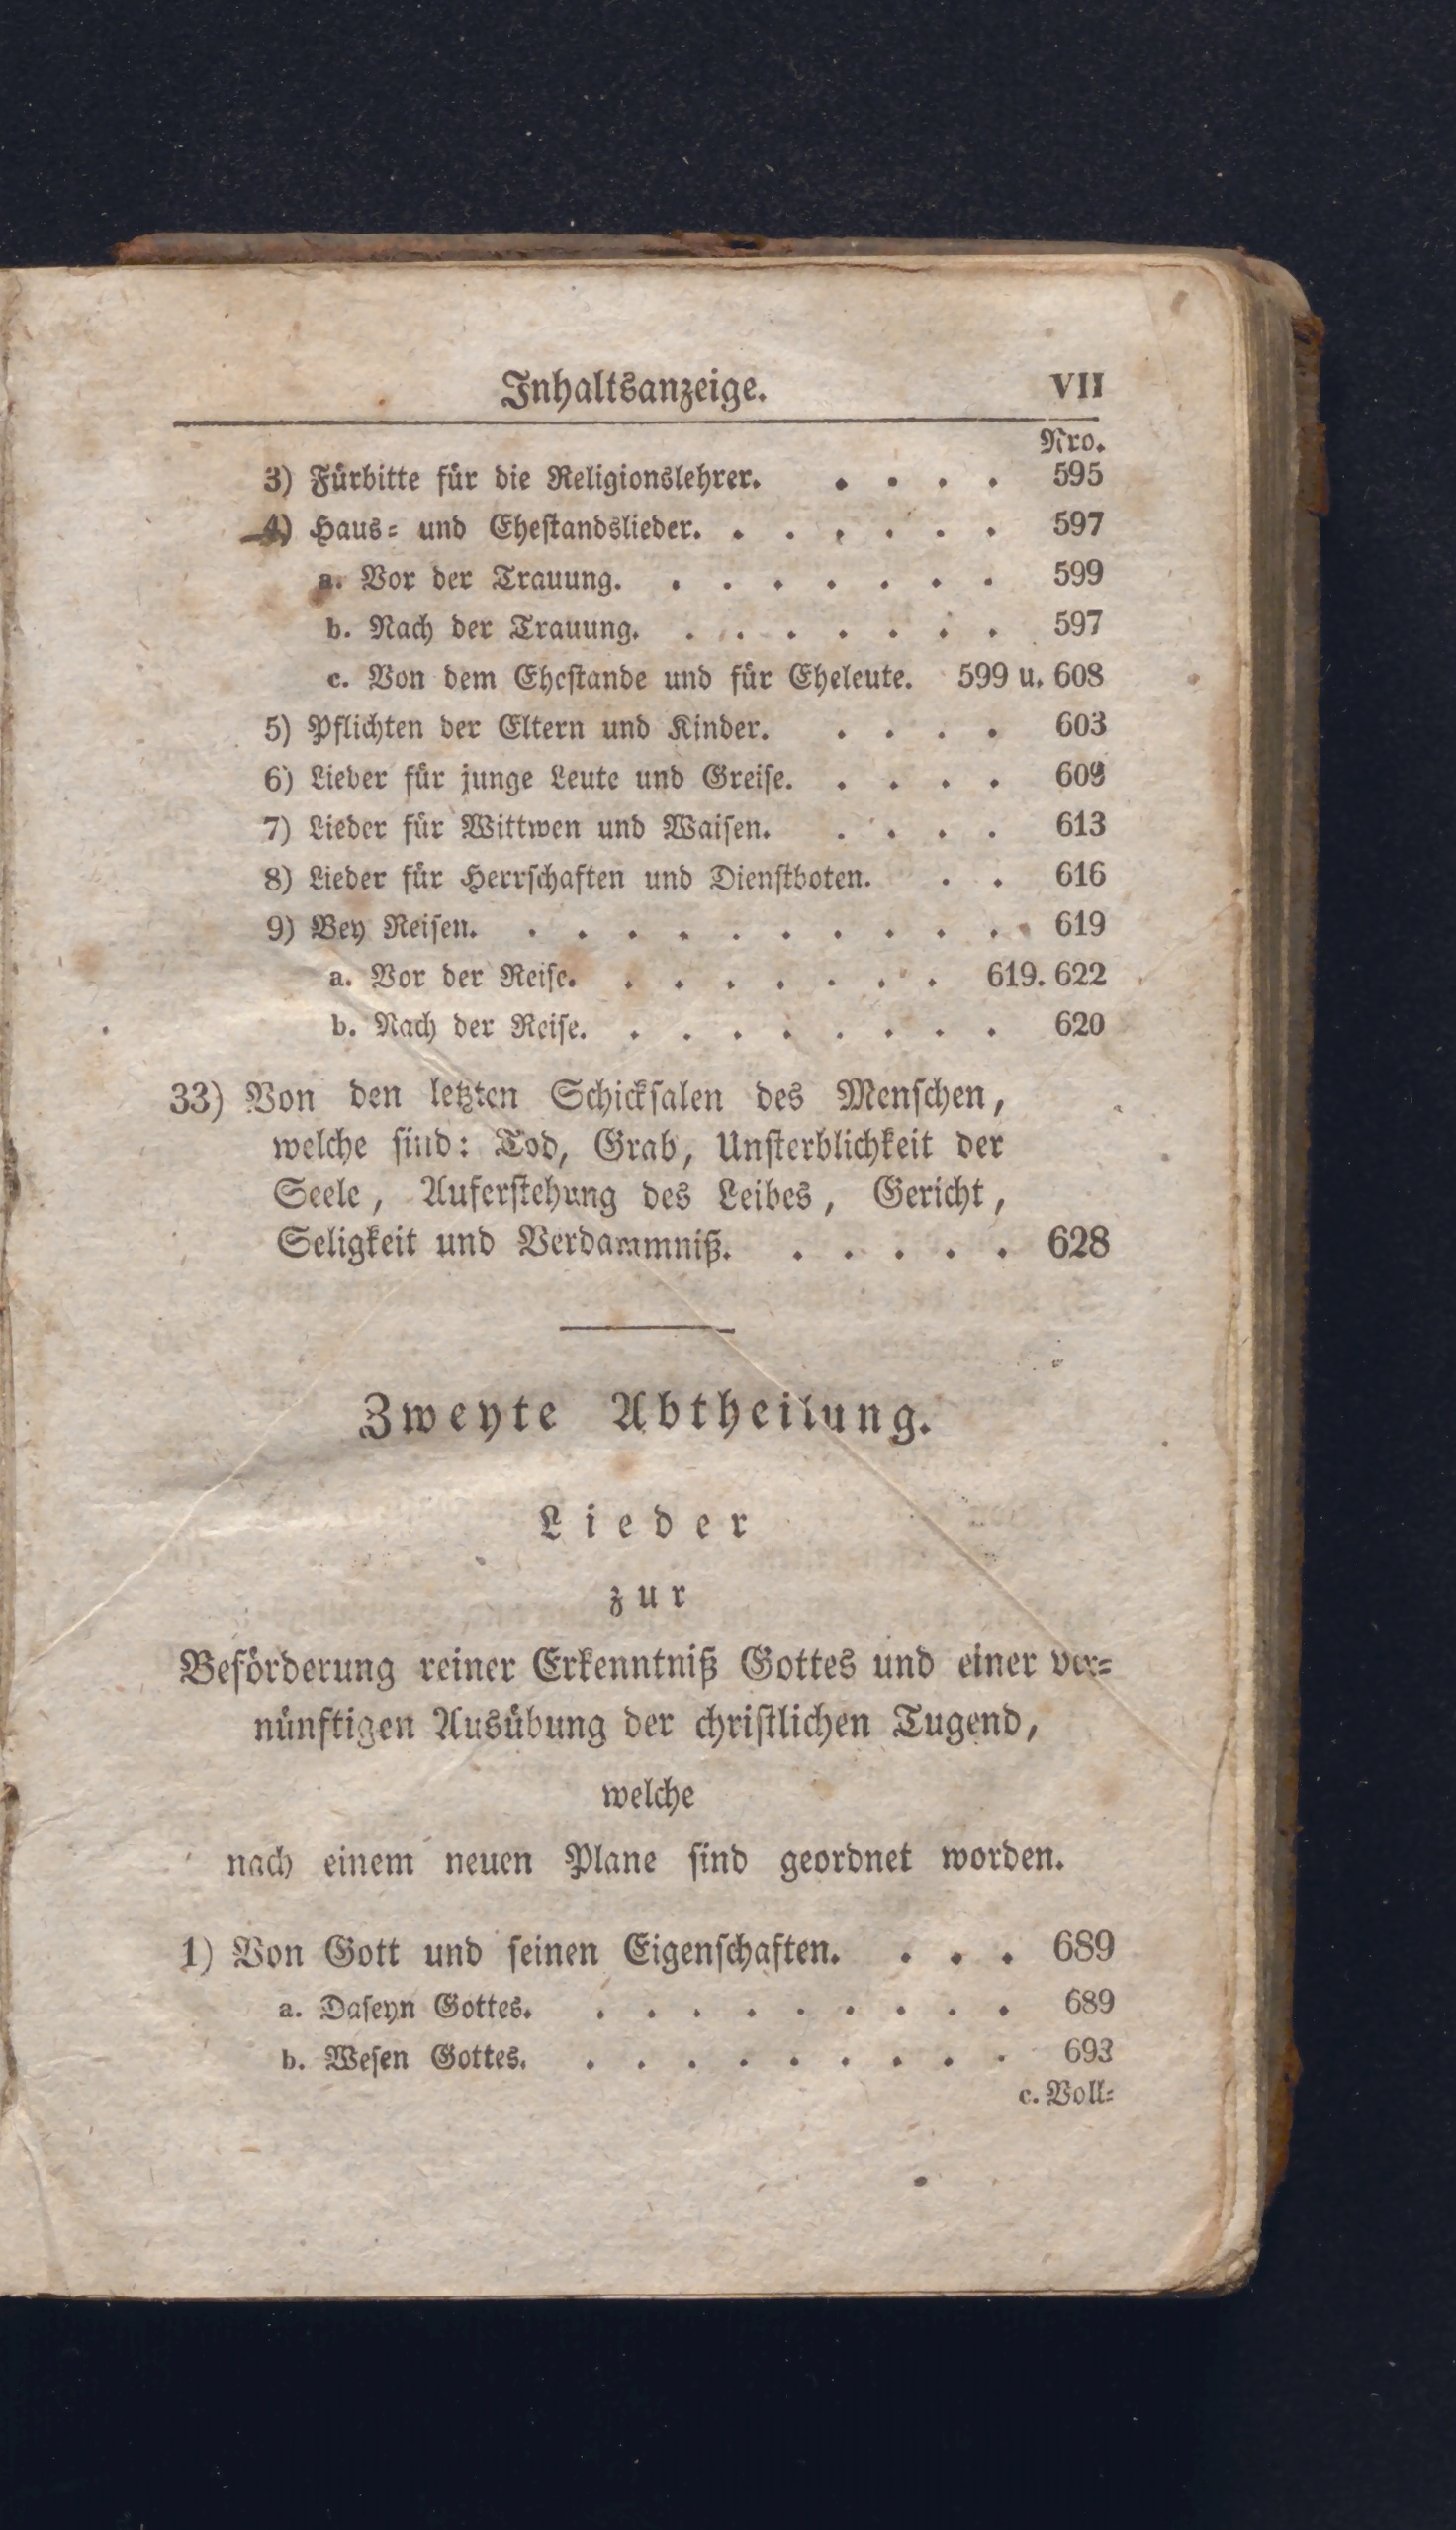 Inhaltsanzeige. VII
Nro.
3) Fürbitte für die Religionslehrer. . . . . 595
4) Haus- und Eheſtandslieder. . . . . . . 597
a. Vor der Trauung. . . . . . . . 599
b. Nach der Trauung. . . . . . . . 597
c. Von dem Eheſtande und für Eheleute. 599 u. 608
5) Pflichten der Eltern und Kinder. . . . . 603
6) Lieder für junge Leute und Greiſe. . . . . 609
7) Lieder für Wittwen und Waiſen. . . . . 613
8) Lieder für Herrſchaften und Dienſtboten. . . 616
9) Bey Reiſen. . . . . . . . . . . 619
a. Vor der Reiſe. . . . . . . . 619. 622
b. Nach der Reiſe. . . . . . . . . 620
33) Von den letzten Schickſalen des Menſchen,
welche ſind: Tod, Grab, Unſterblichkeit der
Seele, Auferſtehung des Leibes, Gericht,
Seligkeit und Verdammniß. . . . . . 628
Zweyte Abtheilung.
Lieder
zur
Beförderung reiner Erkenntniß Gottes und einer ver-
nünftigen Ausübung der chriſtlichen Tugend,
welche
nach einem neuen Plane ſind geordnet worden.
1) Von Gott und ſeinen Eigenſchaften. . . . 689
a. Daſeyn Gottes. . . . . . . . . . 689
b. Weſen Gottes. . . . . . . . . . 693
c. Voll-